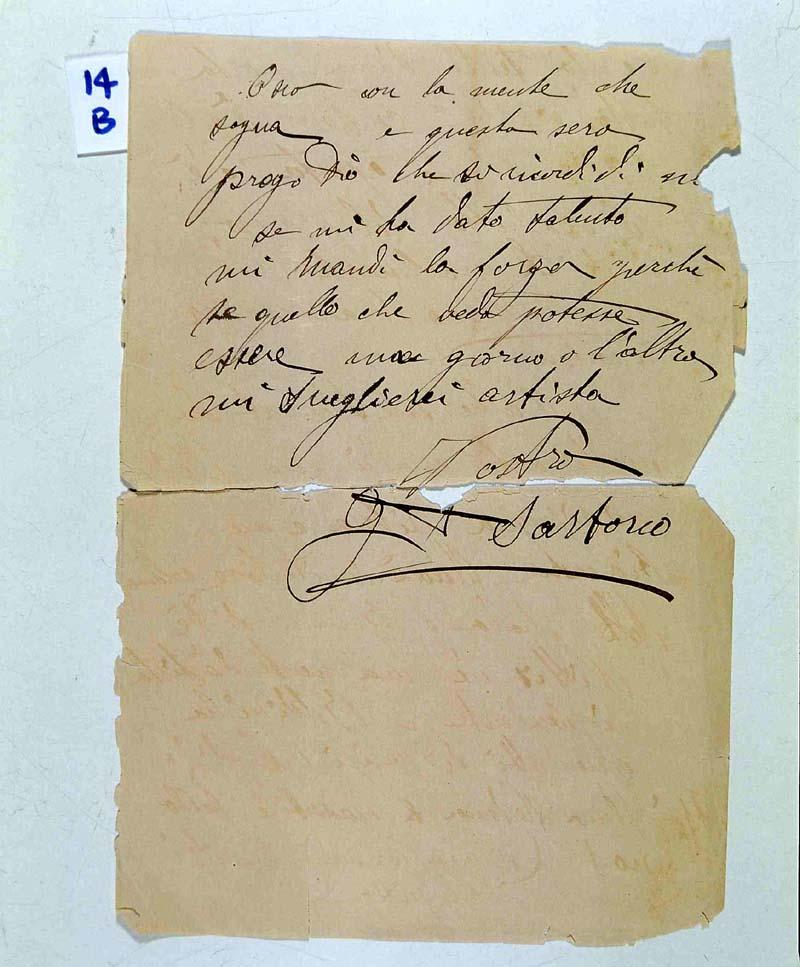 14
B
Oso con la mente che
sogna e questa sera
prego Dio che si ricordi di me
se mi ha dato talento
mi mandi la forza perchè
se quello che vedo potesse
essere un giorno o l'altro
mi sveglierei artista
Vostro
G A Sartorio